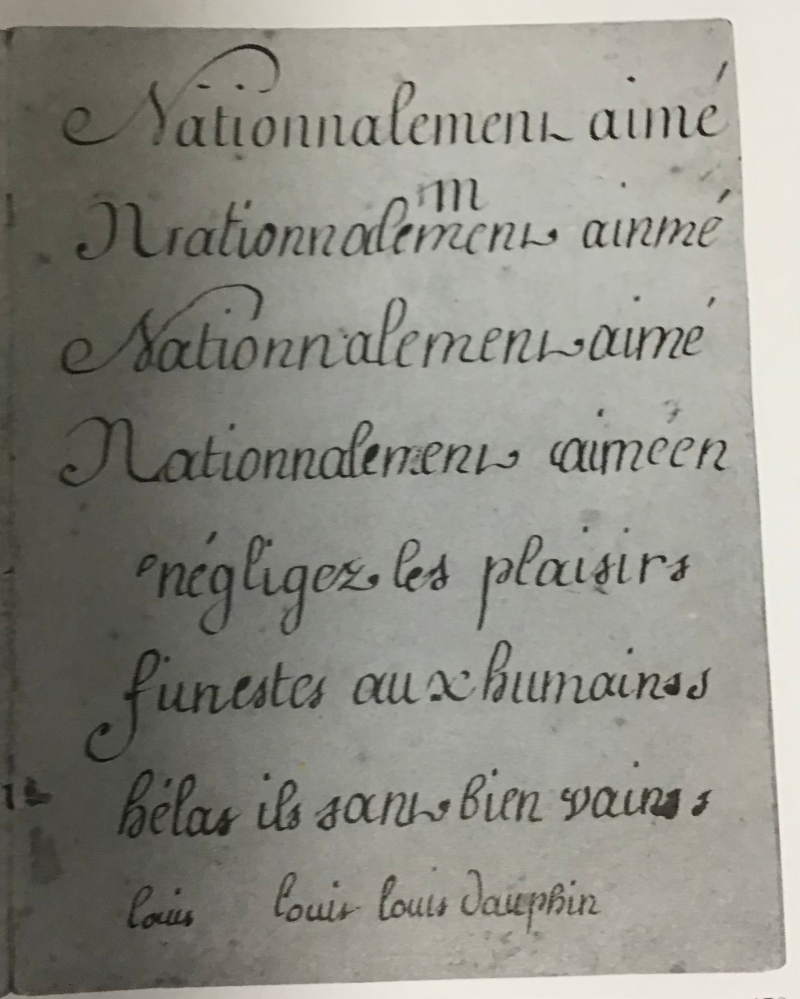 Nationnalement aimé
m
Nrationnalement ainmé
Nationnalement aimé
Nationnalement aiméen
négligez les plaisirs
funestes aux humainss
hélas ils sant bien vainss
louis louis louis Dauphin